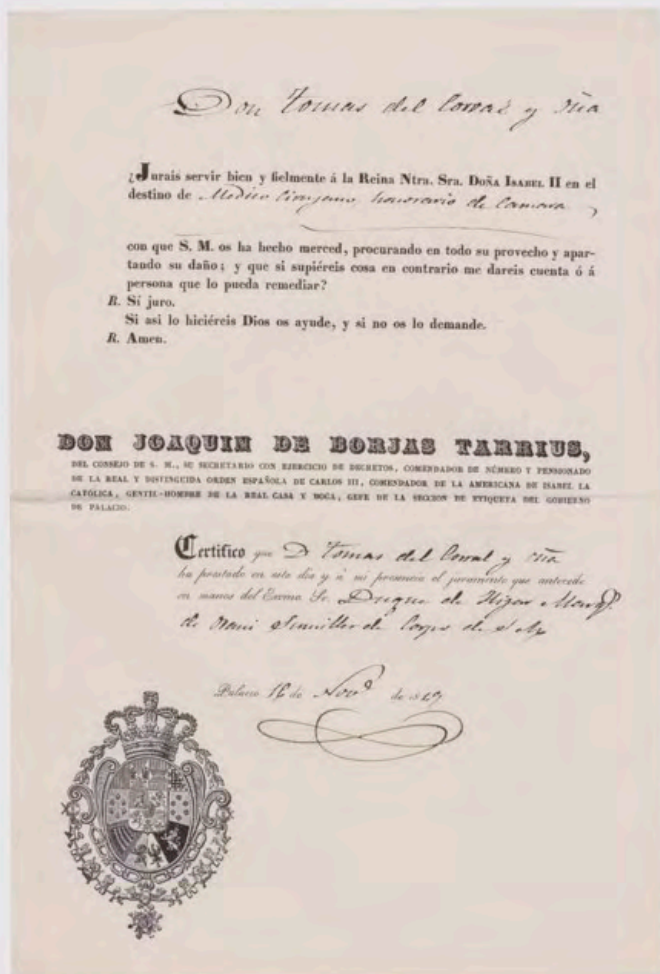 Don Tomas del Corral y Oña
¿Jurais servir bien y fielmente á la Reina Ntra. Sra. DOÑA ISABEL II en el
destino de Medico Cirujano honorario de Camara
con que S. M. os ha hecho merced, procurando en todo su provecho y apar-
tando su daño; y que si supiéreis cosa en contrario me dareis cuenta ó á
persona que lo pueda remediar?
R. Sí juro.
Si asi lo hiciéreis Dios os ayude, y si no os lo demande.
R. Amen.
DON JOAQUIN DE BORJAS TARRIUS,
DEL CONSEJO DE S. M., SU SECRETARIO CON EJERCICIO DE DECRETOS, COMENDADOR DE NÚMERO Y PENSIONADO
DE LA REAL Y DISTINGUIDA ORDEN ESPAÑOLA DE CARLOS III, COMENDADOR DE LA AMERICANA DE ISABEL LA
CATÓLICA, GENTIL-HOMBRE DE LA REAL CASA Y BOCA, GEFE DE LA SECCION DE ETIQUETA DEL GOBIERNO
DE PALACIO.
Certifico que D Tomas del Corral y Oña
ha prestado en este dia y á mi presencia el juramento que antecede
en manos del Excmo. Sr. Duque de Hijar Marqs.
de Orani Sumiller de Corps de S M
Palacio 16 de Novе. de